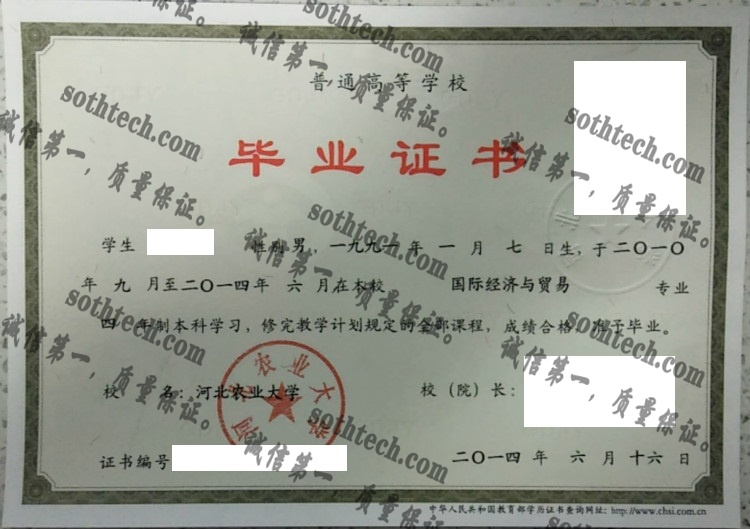 普通高等学校
毕业证书
学生 性别男，一九九一年 一 月 七 日生，于二〇一〇
年 九 月至二〇一四年 六 月在本校 国际经济与贸易 专业
四 年制本科学习，修完教学计划规定的全部课程，成绩合格，准予毕业。
校 名：河北农业大学 校（院）长：
证书编号 二〇一四 年 六 月 十六 日
中华人民共和国教育部学历证书查询网址：http://www.chsi.com.cn
农业大学
sothtech.com
诚信第一，质量保证。
sothtech.com
诚信第一，质量保证。
sothtech.com
诚信第一，质量保证。
sothtech.com
诚信第一，质量保证。
sothtech.com
诚信第一，质量保证。
sothtech.com
诚信第一，质量保证。
sothtech.com
诚信第一，质量保证。
sothtech.com
诚信第一，质量